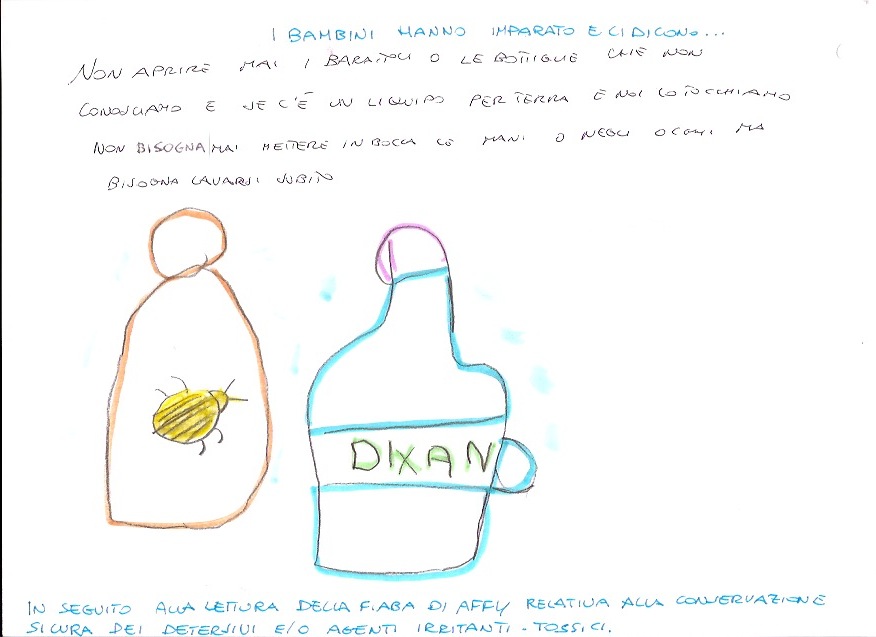 I BAMBINI HANNO IMPARATO E CI DICONO...
NON APRIRE MAI I BARATTOLI O LE BOTTIGLIE CHE NON
CONOSCIAMO E SE C'È UN LIQUIDO PER TERRA E NOI LO TOCCHIAMO
NON BISOGNA MAI METTERE IN BOCCA LE MANI O NEGLI OCCHI MA
BISOGNA LAVARSI SUBITO
DIXAN
IN SEGUITO ALLA LETTURA DELLA FIABA DI AFFY RELATIVA ALLA CONSERVAZIONE
SICURA DEI DETERSIVI E/O AGENTI IRRITANTI - TOSSICI.